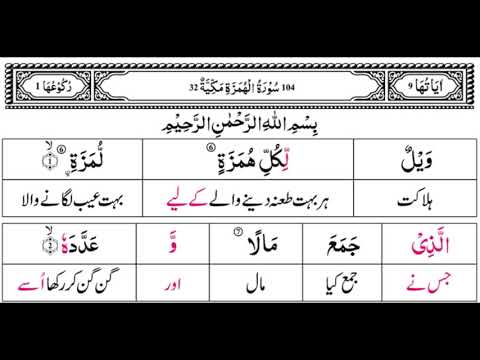 اٰيَاتُهَا 9 104 سُوْرَةُ الْهُمَزَةِ مَكِّيَّةٌ 32 رُكُوْعُهَا 1
بِسْمِ اللّٰهِ الرَّحْمٰنِ الرَّحِيْمِ
وَيْلٌ لِّكُلِّ هُمَزَةٍ ⁶ لُّمَزَةِ ⁶ ۙ‏ ١
ہلاکت ہر بہت طعنہ دینے والے کے لیے بہت عیب لگانے والا
الَّذِىْ جَمَعَ مَالًا ⁷ وَّ عَدَّدَهٗ ۙ‏ ٢
جس نے جمع کیا مال اور گن گن کر رکھا اُسے